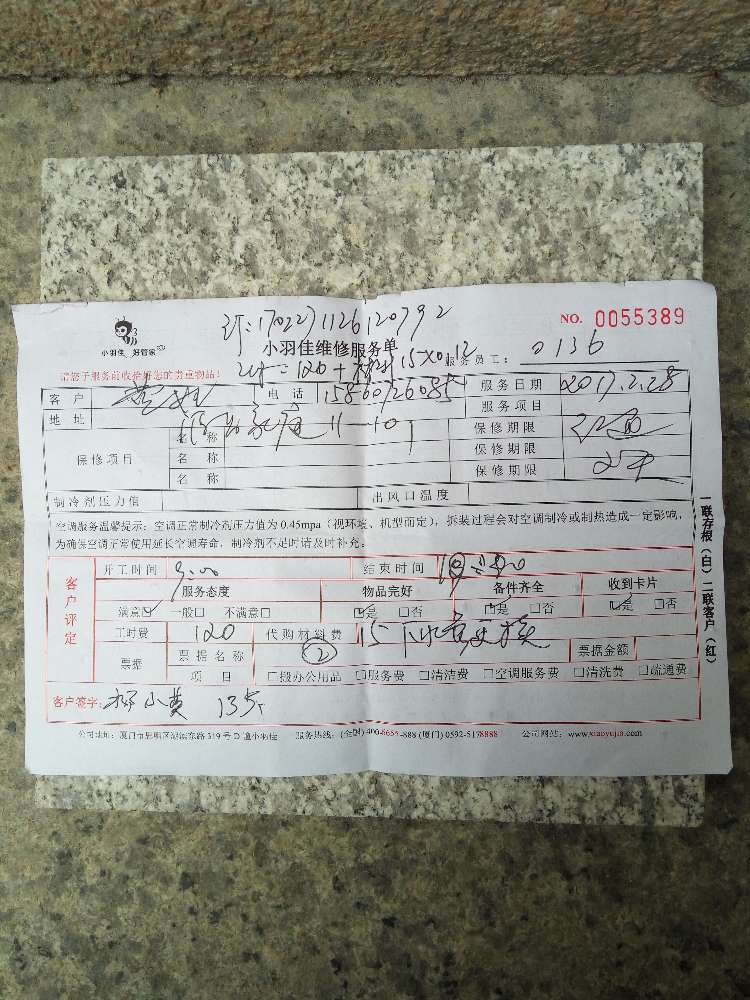 小羽佳 好管家
小羽佳维修服务单
NO. 0055389
请您于服务前收拾好您的贵重物品!
服务员工: 0136
客户 电话 15860726085 服务日期 2017.2.28
地址 11-10 服务项目
保修项目 名称 保修期限
名称 保修期限
名称 保修期限
制冷剂压力值 出风口温度
空调服务温馨提示: 空调正常制冷剂压力值为 0.45mpa (视环境、机型而定), 拆装过程会对空调制冷或制热造成一定影响,
为确保空调正常使用延长空调寿命, 制冷剂不足时请及时补充。
客户评定
开工时间 9:00 结束时间
服务态度 物品完好 备件齐全 收到卡片
满意☑ 一般□ 不满意□ ☑是 □否 ☑是 □否 ☑是 □否
工时费 120 代购材料费 15 下水管更换
票据 票据名称 ② 票据金额
项目 □搬办公用品 □服务费 □清洁费 □空调服务费 □清洗费 □疏通费
客户签字: 135
一联存根(白)二联客户(红)
公司地址: 厦门市思明区湖滨东路 319 号 D 幢小羽佳 服务热线: (全国) 400-6655-888 (厦门) 0592-5178888 公司网站: www.xiaoyujia.com